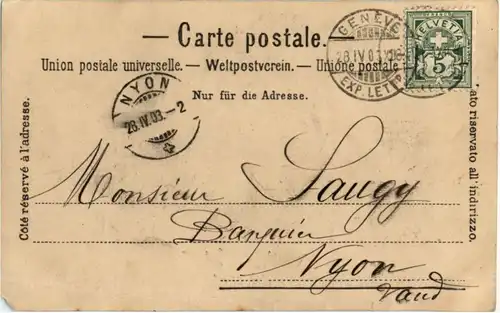 Carte postale.
Union postale universelle. — Weltpostverein. — Unione postale
Nur für die Adresse.
Côté réservé à l'adresse.
lato riservato all'indirizzo.
GENÈVE
28.IV.03
EXP. LETT.
HELVETIA
5
NYON
28.IV.03.-2
Monsieur Saugy
Banquier
Nyon
Vaud